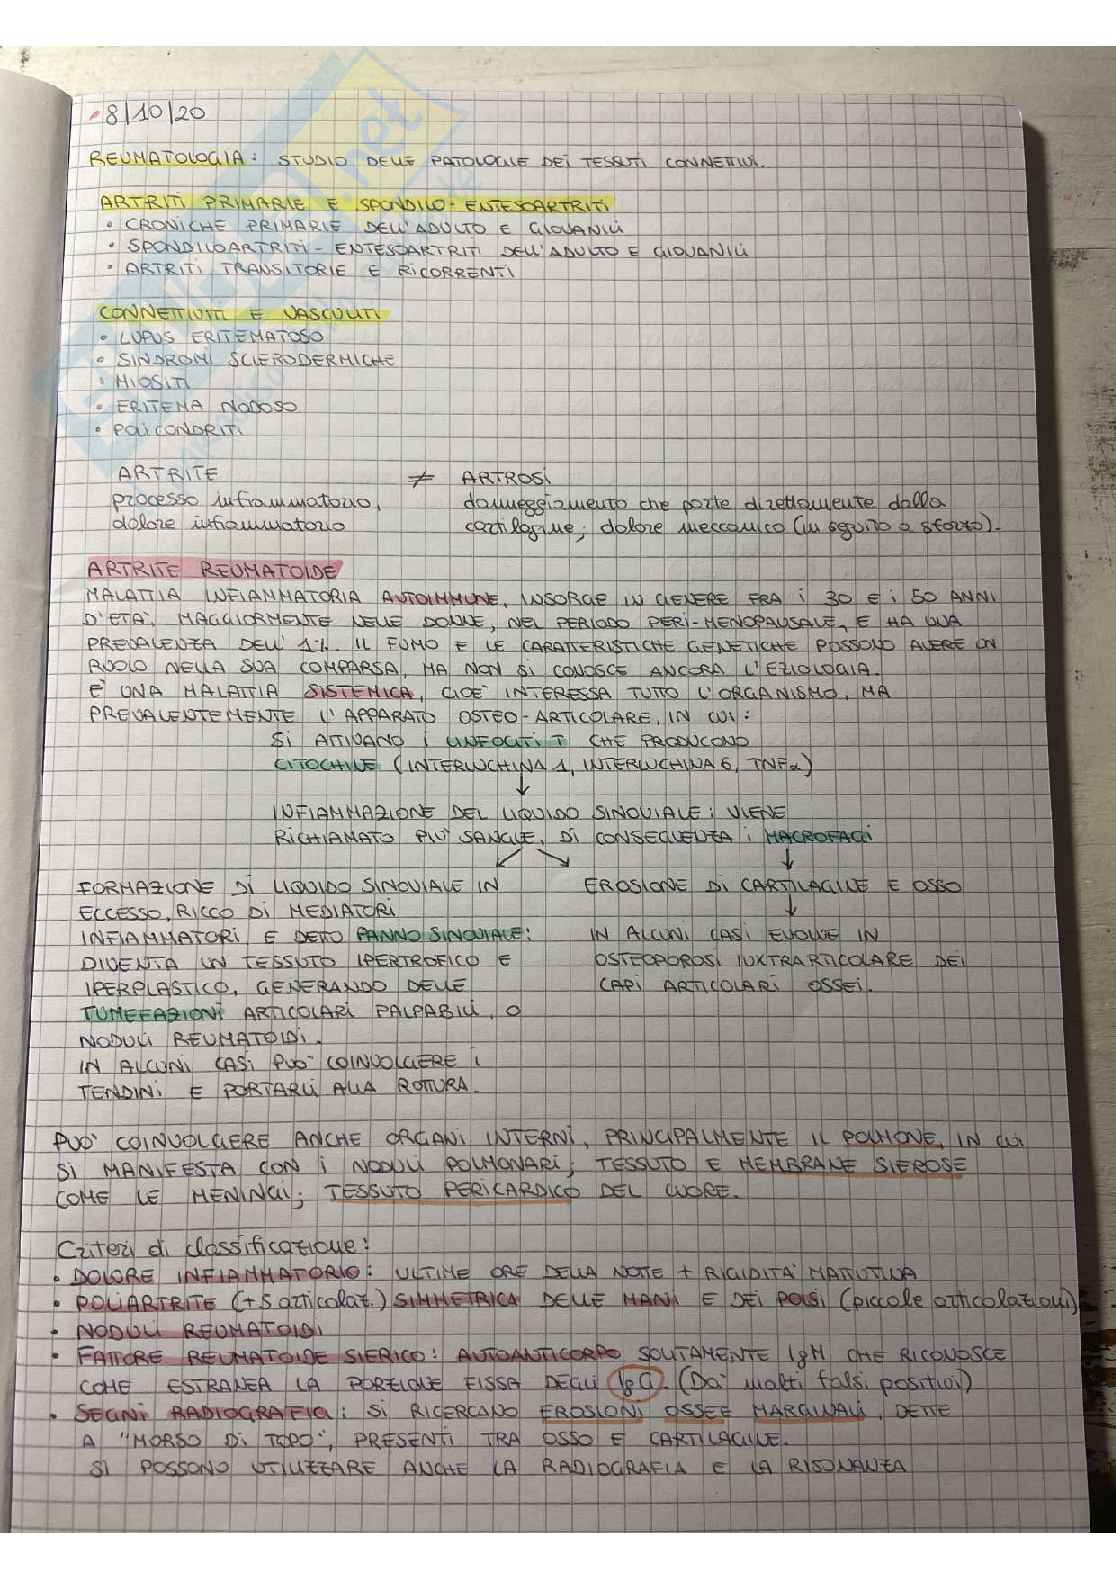 8/10/20
REUMATOLOGIA: STUDIO DELLE PATOLOGIE DEI TESSUTI CONNETTIVI.
ARTRITI PRIMARIE E SPONDILO-ENTESOARTRITI
• CRONICHE PRIMARIE DELL'ADULTO E GIOVANILI
• SPONDILOARTRITI-ENTESOARTRITI DELL'ADULTO E GIOVANILI
• ARTRITI TRANSITORIE E RICORRENTI
CONNETTIVITI E VASCULITI
• LUPUS ERITEMATOSO
• SINDROMI SCLERODERMICHE
• MIOSITI
• ERITEMA NODOSO
• POLICONDRITI
ARTRITE ≠ ARTROSI
processo infiammatorio, danneggiamento che parte direttamente dalla
dolore infiammatorio cartilagine; dolore meccanico (in seguito a sforzo).
ARTRITE REUMATOIDE
MALATTIA INFIAMMATORIA AUTOIMMUNE, INSORGE IN GENERE FRA I 30 E I 50 ANNI
D'ETÀ, MAGGIORMENTE NELLE DONNE, NEL PERIODO PERI-MENOPAUSALE, E HA UNA
PREVALENZA DELL'1%. IL FUMO E LE CARATTERISTICHE GENETICHE POSSONO AVERE UN
RUOLO NELLA SUA COMPARSA, MA NON SI CONOSCE ANCORA L'EZIOLOGIA.
È UNA MALATTIA SISTEMICA, CIOÈ INTERESSA TUTTO L'ORGANISMO, MA
PREVALENTEMENTE L'APPARATO OSTEO-ARTICOLARE, IN CUI:
SI ATTIVANO I LINFOCITI T CHE PRODUCONO
CITOCHINE (INTERLUCHINA 1, INTERLUCHINA 6, TNFα)
↓
INFIAMMAZIONE DEL LIQUIDO SINOVIALE: VIENE
RICHIAMATO PIÙ SANGUE, DI CONSEGUENZA I MACROFAGI
FORMAZIONE DI LIQUIDO SINOVIALE IN EROSIONE DI CARTILAGINE E OSSO
ECCESSO, RICCO DI MEDIATORI ↓
INFIAMMATORI E DETTO PANNO SINOVIALE: IN ALCUNI CASI EVOLVE IN
DIVENTA UN TESSUTO IPERTROFICO E OSTEOPOROSI IUXTRARTICOLARE DEI
IPERPLASTICO, GENERANDO DELLE CAPI ARTICOLARI OSSEI.
TUMEFAZIONI ARTICOLARI PALPABILI, O
NODULI REUMATOIDI.
IN ALCUNI CASI PUÒ COINVOLGERE I
TENDINI E PORTARLI ALLA ROTTURA.
PUÒ COINVOLGERE ANCHE ORGANI INTERNI, PRINCIPALMENTE IL POLMONE, IN CUI
SI MANIFESTA CON I NODULI POLMONARI; TESSUTO E MEMBRANE SIEROSE
COME LE MENINGI; TESSUTO PERICARDICO DEL CUORE.
Criteri di classificazione:
• DOLORE INFIAMMATORIO: ULTIME ORE DELLA NOTTE + RIGIDITÀ MATTUTINA
• POLIARTRITE (+5 articolaz.) SIMMETRICA DELLE MANI E DEI POLSI (piccole articolazioni)
• NODULI REUMATOIDI
• FATTORE REUMATOIDE SIERICO: AUTOANTICORPO SOLITAMENTE IgM CHE RICONOSCE
COME ESTRANEA LA PORZIONE FISSA DEGLI IgG. (Dà molti falsi positivi)
• SEGNI RADIOGRAFIA: SI RICERCANO EROSIONI OSSEE MARGINALI, DETTE
A "MORSO DI TOPO", PRESENTI TRA OSSO E CARTILAGINE.
SI POSSONO UTILIZZARE ANCHE LA RADIOGRAFIA E LA RISONANZA